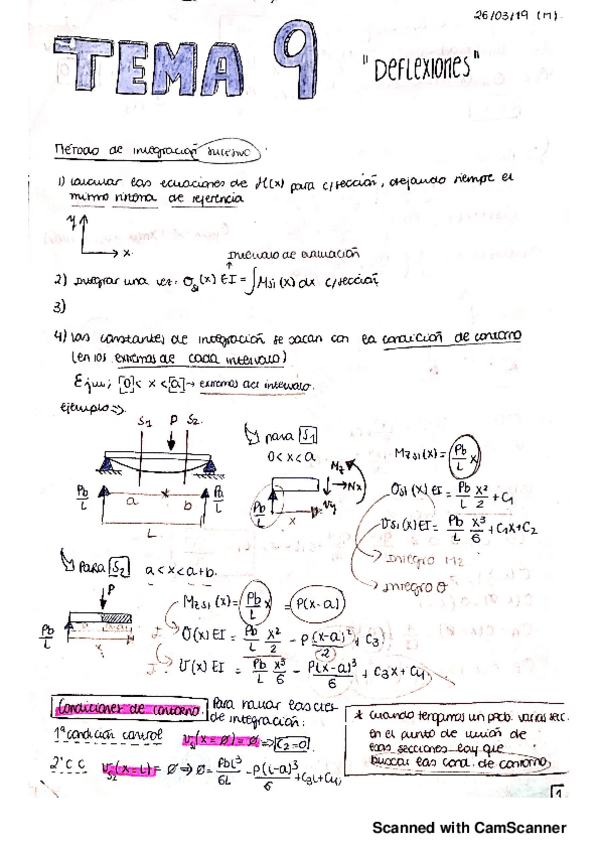 26/03/19 (M).
TEMA 9 "Deflexiones"
Método de integración sucesivo
1) calcular las ecuaciones de M(x) para c/sección, dejando siempre el
mismo sistema de referencia
y
x
Intervalo de evaluación
2) Integrar una vez: θ_{S1}(x) EI = ∫M_{S1}(x) dx c/sección
3)
4) Las constantes de integración se sacan con la condición de contorno
(en los extremos de cada intervalo)
Ejm; [0] < x < [a] → extremos del intervalo.
ejemplo =>.
S1 P S2
Pb/L a b L
para S1
0 < x < a
Mz Nx Vy
Pb/L x
Mz_{S1}(x) = Pb/L x
θ_{S1}(x) EI = Pb/L x²/2 + C1
v_{S1}(x) EI = Pb/L x³/6 + C1x + C2
Integro Mz
integro θ
para S2 a < x < a+b.
P
Pb/L
x
Mz_{S1}(x) = Pb/L x = P(x-a)
θ(x) EI = Pb/L x²/2 - P(x-a)²/2 + C3
v(x) EI = Pb/L x³/6 - P(x-a)³/6 + C3x + C4.
Condiciones de contorno: Para hallar las ctes
de integración:
1ª condición control v_{S1}(x=0) = 0 => C2=0
2ª C C v_{S2}(x=L) = 0 => 0 = PbL³/6L - P(L-a)³/6 + C3L + C4,
* Cuando tengamos un prob. varias secc.
en el punto de unión de
esas secciones hay que
buscar las cond. de contorno,
1
Scanned with CamScanner